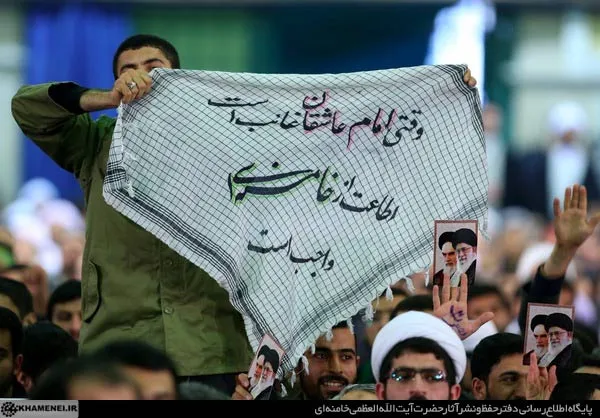 وقتی امام عاشقان غائب است
اطاعت از خامنه‌ای
واجب است
KHAMENEI.IR
پایگاه اطلاع رسانی دفتر حفظ و نشر آثار حضرت آیت الله العظمی خامنه‌ای